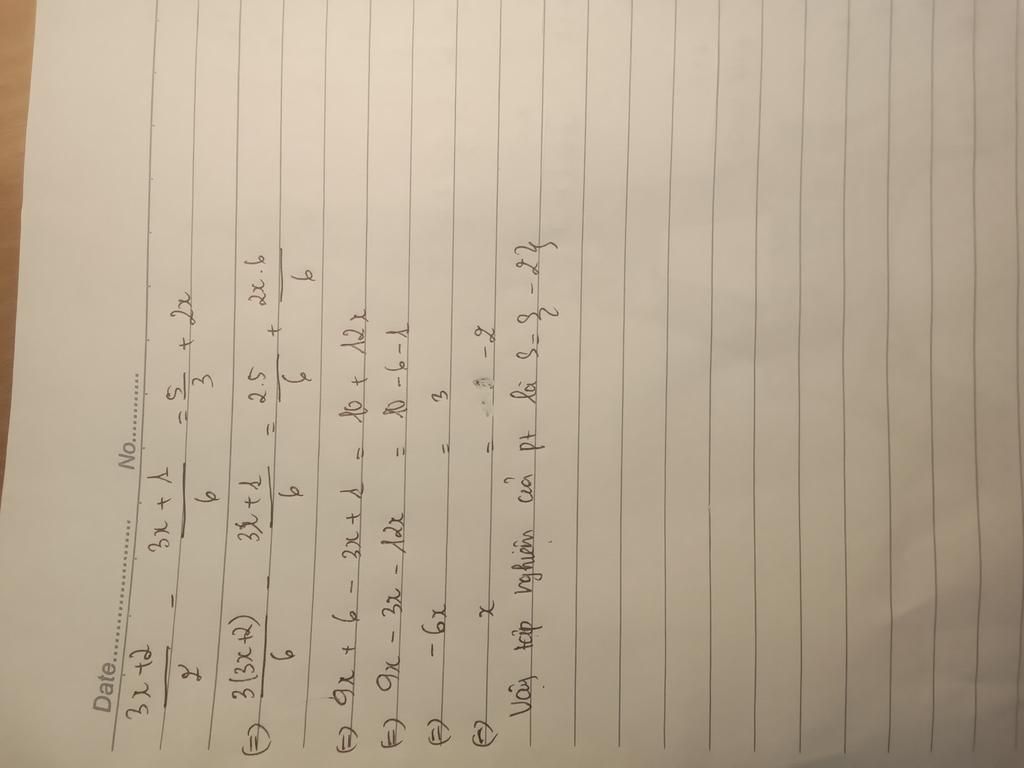 Date.................... No............
(3x+2)/2 - (3x+1)/6 = 5/3 + 2x
(=) 3(3x+2)/6 - (3x+1)/6 = 2.5/6 + 2x.6/6
(=) 9x + 6 - 3x + 1 = 10 + 12x
(=) 9x - 3x - 12x = 10 - 6 - 1
(=) - 6x = 3
(=) x = - 2
Vậy tập nghiệm của pt là S = { - 2}